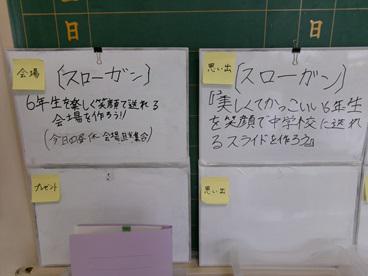 日
日
会場
〔スローガン〕
6年生を楽しく笑顔で送れる
会場を作ろう!!
プレゼント
思い出
〔スローガン〕
『美しくてかっこいい6年生
を笑顔で中学校に送れ
るスライドを作ろう』
思い出